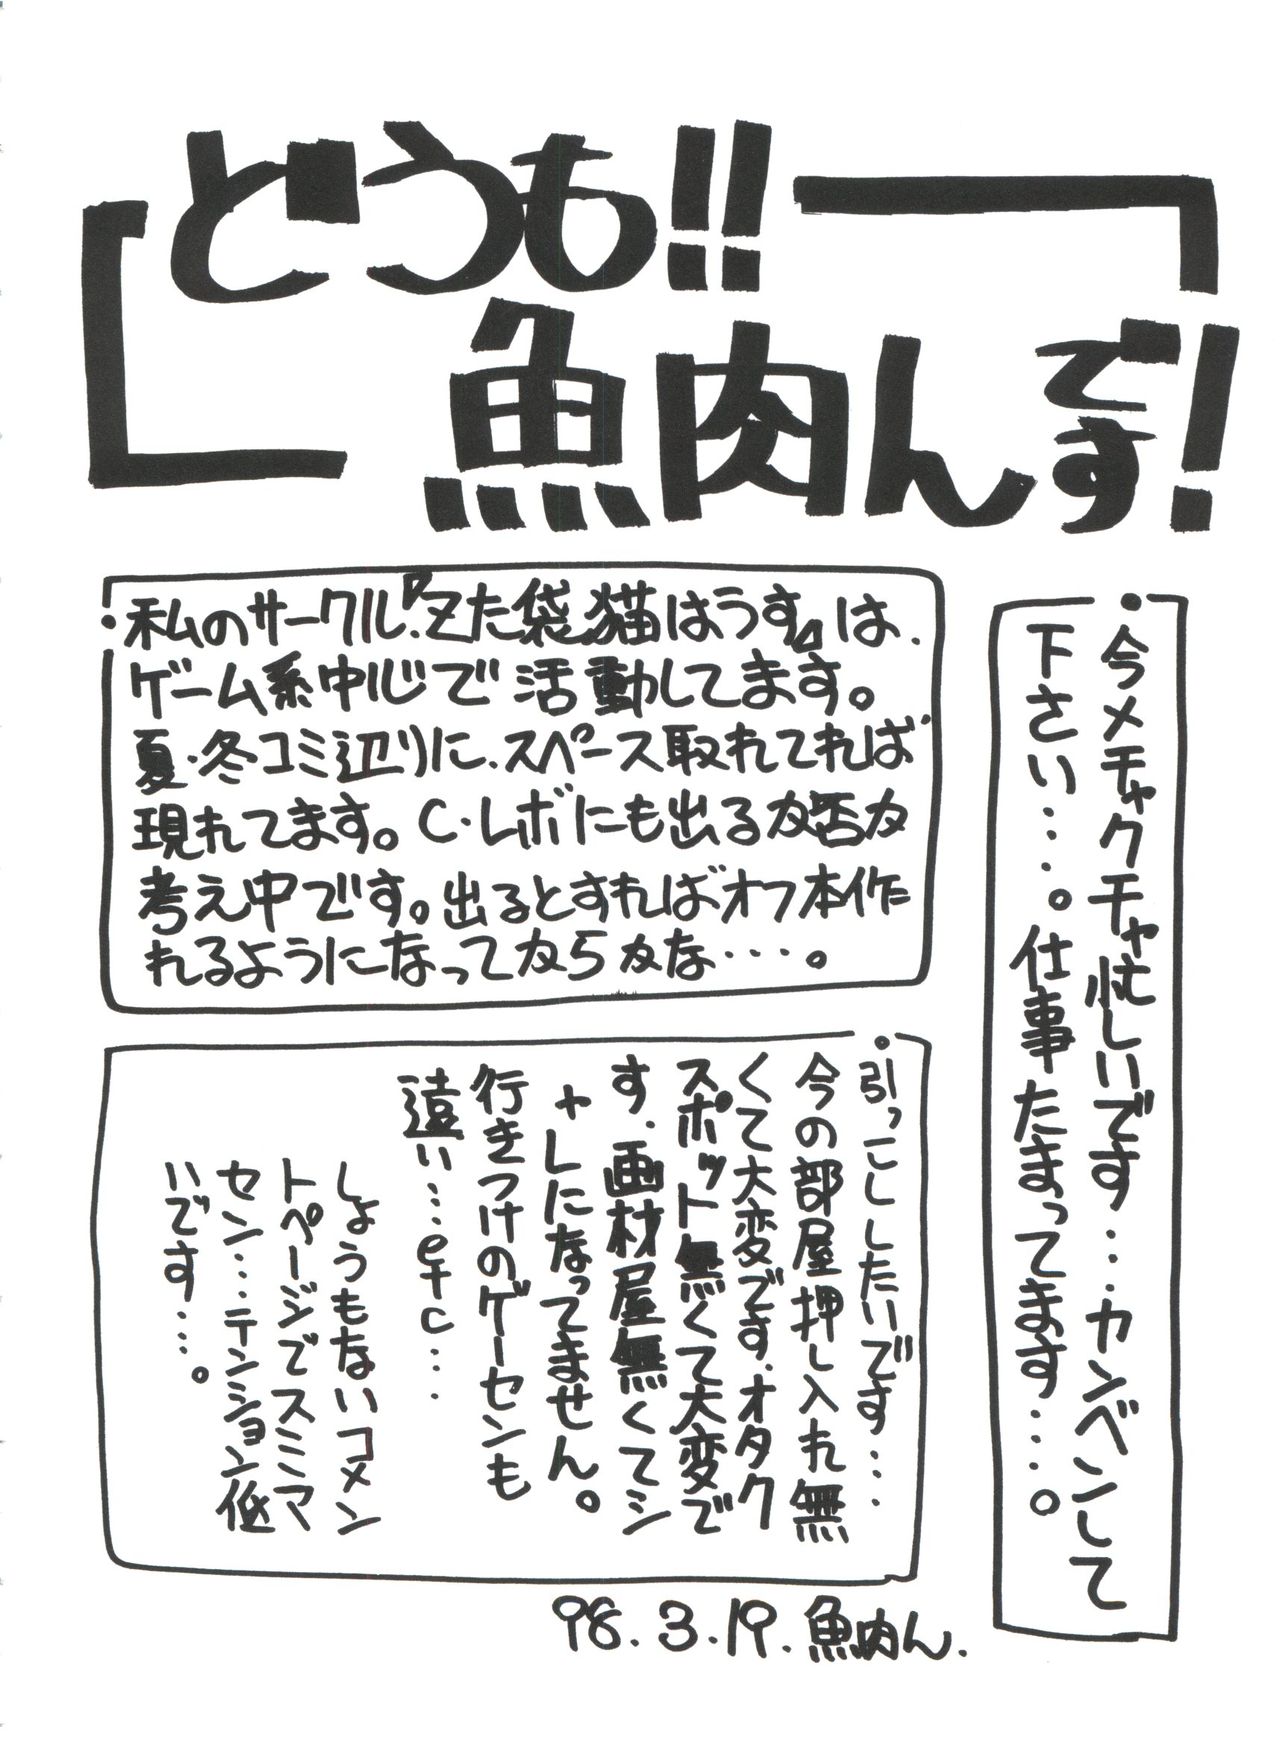 どうも!!
魚肉んです!
・今メチャクチャ忙しいです…カンベンして
下さい…。仕事たまってます…。
・私のサークル、『ズた袋猫はうす』は、
ゲーム系中心で活動してます。
夏・冬コミ辺りに、スペース取れてれば
現れてます。C・レボにも出るか否か
考え中です。出るとすればオフ本作
れるようになってからかな…。
・引っこしたいです…
今の部屋押し入れ無
くて大変です。オタク
スポット無くて大変で
す。画材屋無くてシ
ャレになってません。
行きつけのゲーセンも
遠い…etc…
しょうもないコメン
トページでスミマ
セン…テンション低
いです…。
98.3.19.魚肉ん.